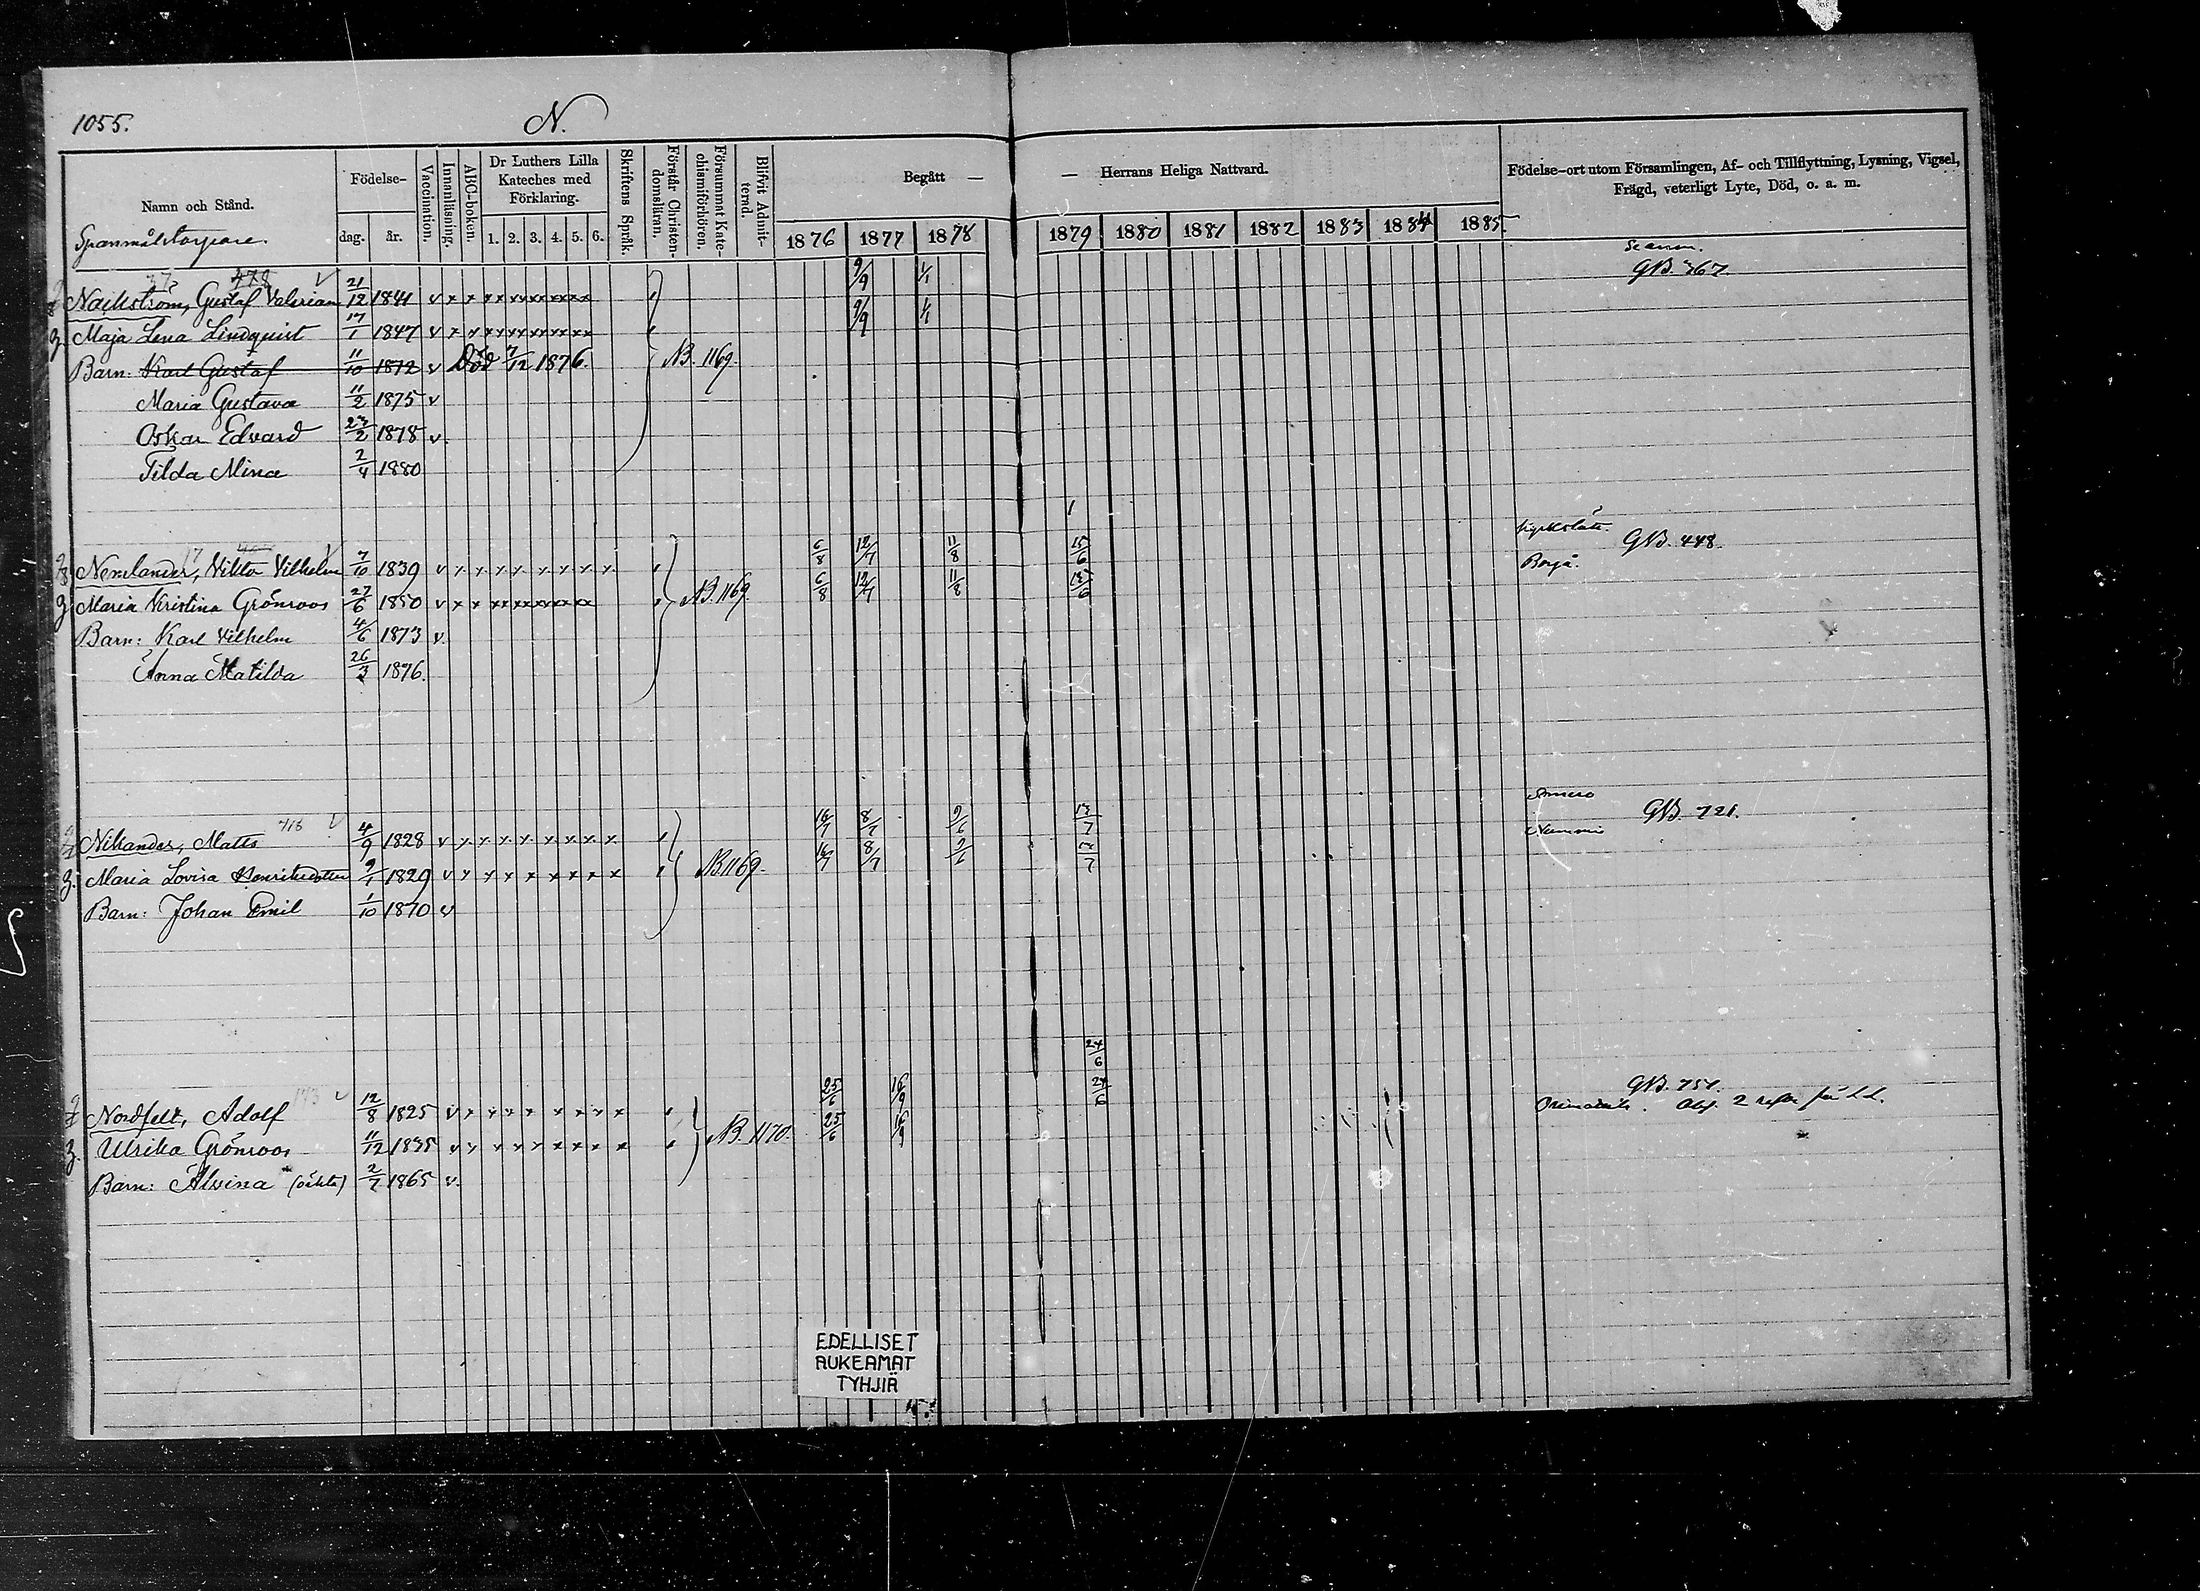 1055.
N.
Namn och Stånd.
Födelse-
dag.
år.
Vaccination.
Innanläsning.
ABC-boken.
Dr Luthers Lilla Kateches med Förklaring.
1. 2. 3. 4. 5. 6.
Skriftens Språk.
Förstår Christendomsläran.
Försummat Katechismiförhören.
Blifvit Admitterad.
Begått —
— Herrans Heliga Nattvard.
1876 1877 1878 1879 1880 1881 1882 1883 1884 1885.
Födelse-ort utom Församlingen, Af- och Tillflyttning, Lysning, Vigsel,
Frägd, veterligt Lyte, Död, o. a. m.
9/9 1/1
GB. 767
Gustaf Valerian 21/12 1841 v x x x x x x x x x x
Maja Lena Lindquist 17/1 1847 v x x x x x x x x x x 9/9 1/1
Barn: Karl Gustaf 11/10 1872 v Död 7/12 1876. NB. 1169.
Maria Gustava 11/2 1875 v
Oskar Edvard 27/2 1878 v.
Tilda Mina 2/4 1880
1
6/8 12/7 11/8 15/6 GB. 448.
Vilhelm 7/10 1839 v x x x x x x x x
Borgå.
Maria Kristina Grönroos 27/6 1850 v x x x x x x x x x NB. 1169. 6/8 12/7 11/8 15/6
Barn: Karl Vilhelm 4/6 1873 v.
Anna Matilda 26/3 1876.
718
16/7 8/7 9/6 13/7 GB. 721.
Nikander, Matts 4/9 1828 v x x x x x x x x
Nummis
Maria Lovisa Henriksdotter 9/1 1829 v x x x x x x x x NB. 1169. 16/7 8/7 9/6 13/7
Barn: Johan Emil 1/10 1870 v
24/6
25/6 16/9 24/6 GB. 751.
Nordfelt, Adolf 12/8 1825 v x x x x x x x x
Ulrika Grönroos 11/12 1835 v x x x x x x x x NB. 1170. 25/6 16/9
Barn: Alvina (oäkta) 2/7 1865 v.
EDELLISET
AUKEAMAT
TYHJIÄ